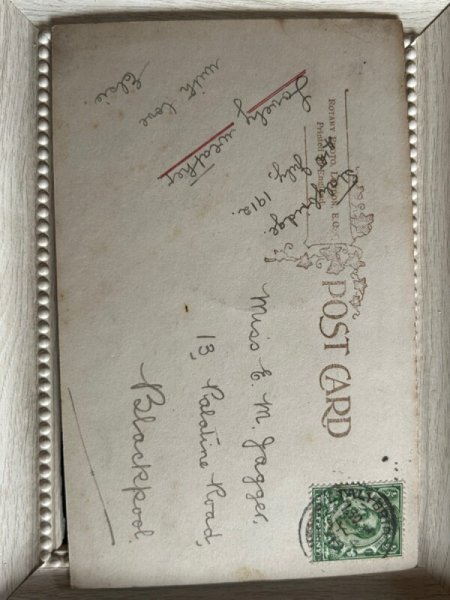 POST CARD
ROTARY PHOTO, LONDON, E.C.
Printed in England
July 1912.
Lovely weather
with love
Elsie.
Miss E. M. Jagger,
13, Palatine Road,
Blackpool.